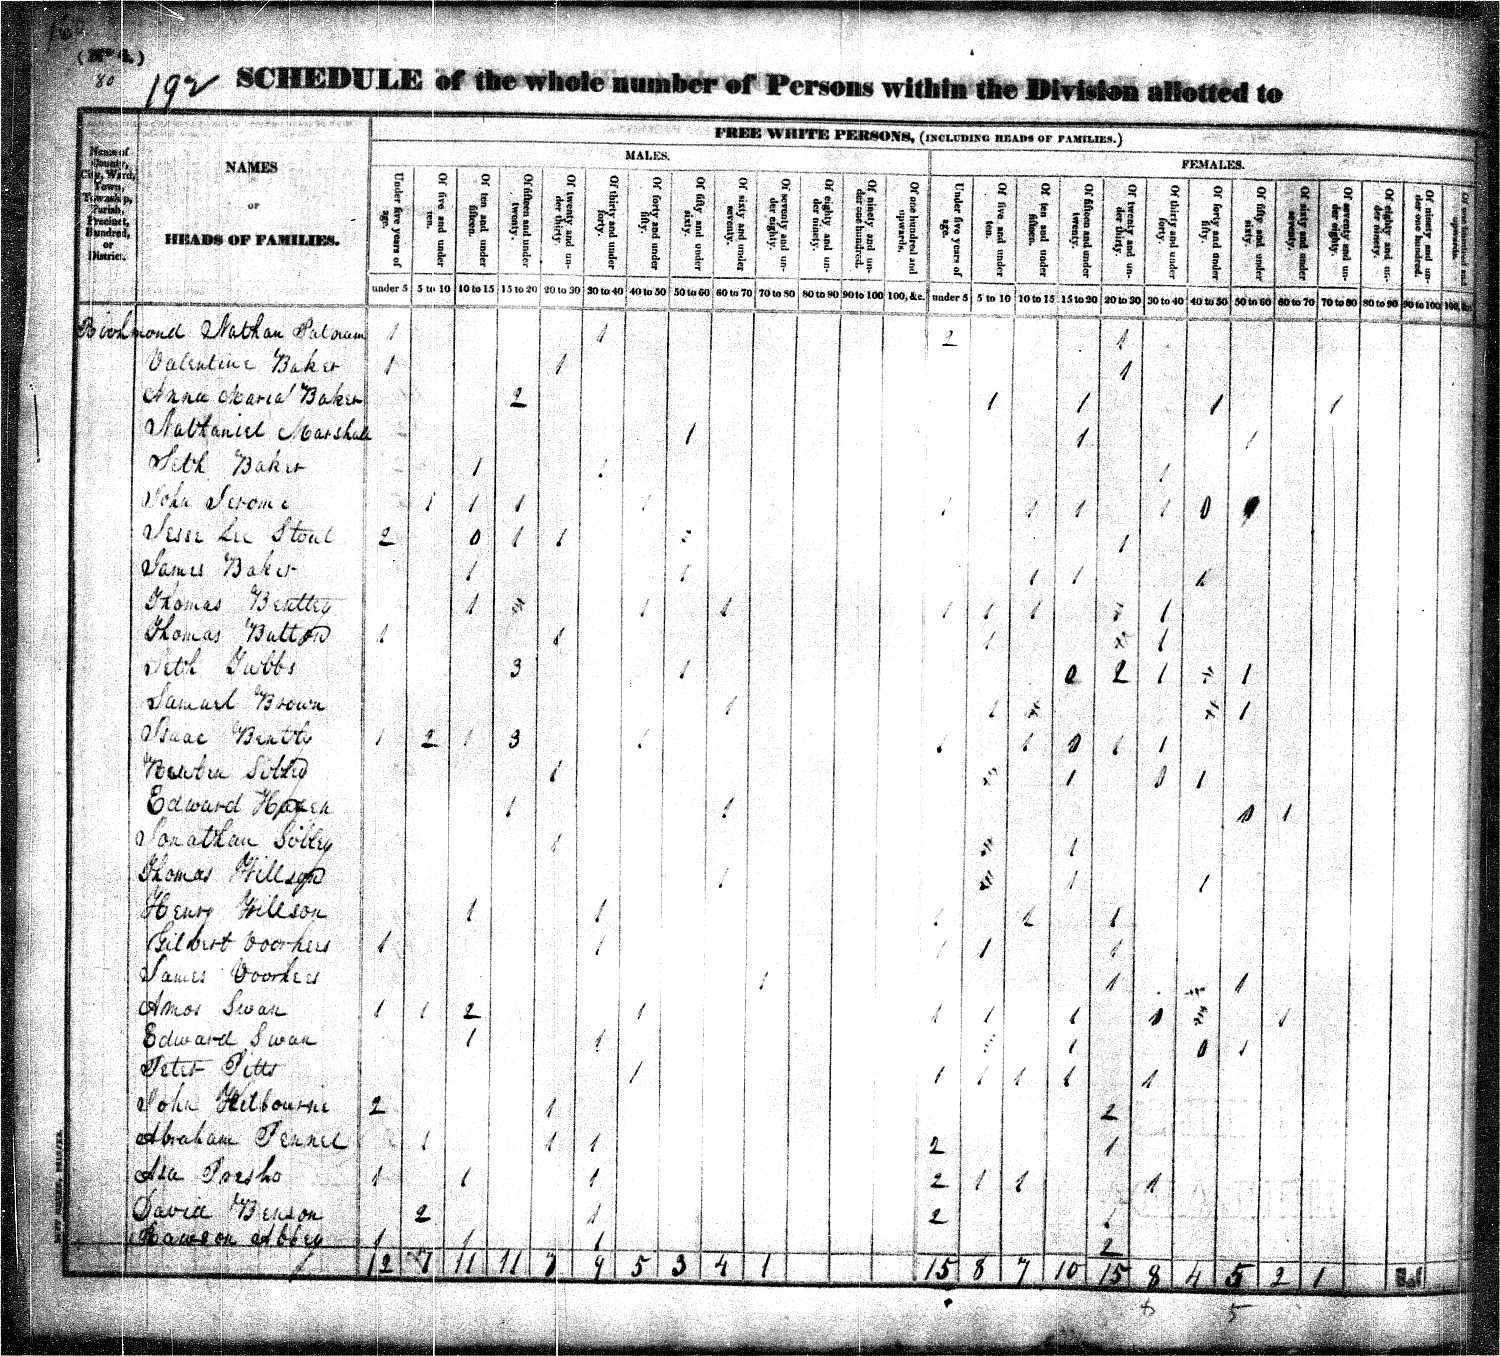 (No 4.)
80
192
SCHEDULE of the whole number of Persons within the Division allotted to
FREE WHITE PERSONS, (INCLUDING HEADS OF FAMILIES.)
MALES.
FEMALES.
Name of County, City, Ward, Town, Township, Parish, Precinct, Hundred, or District.
NAMES
OR
HEADS OF FAMILIES.
Under five years of age.
Of five and under ten.
Of ten and under fifteen.
Of fifteen and under twenty.
Of twenty and under thirty.
Of thirty and under forty.
Of forty and under fifty.
Of fifty and under sixty.
Of sixty and under seventy.
Of seventy and under eighty.
Of eighty and under ninety.
Of ninety and under one hundred.
Of one hundred and upwards.
Under five years of age.
Of five and under ten.
Of ten and under fifteen.
Of fifteen and under twenty.
Of twenty and under thirty.
Of thirty and under forty.
Of forty and under fifty.
Of fifty and under sixty.
Of sixty and under seventy.
Of seventy and under eighty.
Of eighty and under ninety.
Of ninety and under one hundred.
Of one hundred and upwards.
under 5 5 to 10 10 to 15 15 to 20 20 to 30 30 to 40 40 to 50 50 to 60 60 to 70 70 to 80 80 to 90 90 to 100 100, &c. under 5 5 to 10 10 to 15 15 to 20 20 to 30 30 to 40 40 to 50 50 to 60 60 to 70 70 to 80 80 to 90 90 to 100 100, &c.
Richmond Nathan Putnam 1 1 2 1
Valentine Baker 1 1 1
Anna Maria Baker 2 1 1 1 1
Nathaniel Marshall 1 1 1
Seth Baker 1 1 1
John Jerome 1 1 1 1 1 1 1 1 0
Jesse Lee Stout 2 0 1 1 1
James Baker 1 1 1 1 1
Thomas Bentley 1 1 1 1 1 1 1
Thomas Button 1 1 1 1
Seth Tubbs 3 1 0 2 1 1
Samuel Brown 1 1 1
Isaac Bently 1 2 1 3 1 1 1 0 1 1
Reuben Sibley 1 1 0 1
Edward Hazen 1 1 0 1
Jonathan Sibley 1 1
Thomas Willson 1 1 1
Henry Willson 1 1 1 1 1
Gilbert Voorhees 1 1 1 1 1
James Voorhees 1 1 1
Amos Swan 1 1 2 1 1 1 1 0 1
Edward Swan 1 1 1 0 1
Peter Pitts 1 1 1 1 1 1
John Kilbourne 2 1 2
Abraham Pennel 1 1 1 2 1
Asa Presho 1 1 1 2 1 1 1
David Benson 2 1 2 1
Rawson Abbey 1 1 1 2
12 7 11 11 7 9 5 3 4 1 15 8 7 10 15 8 4 5 2 1
5